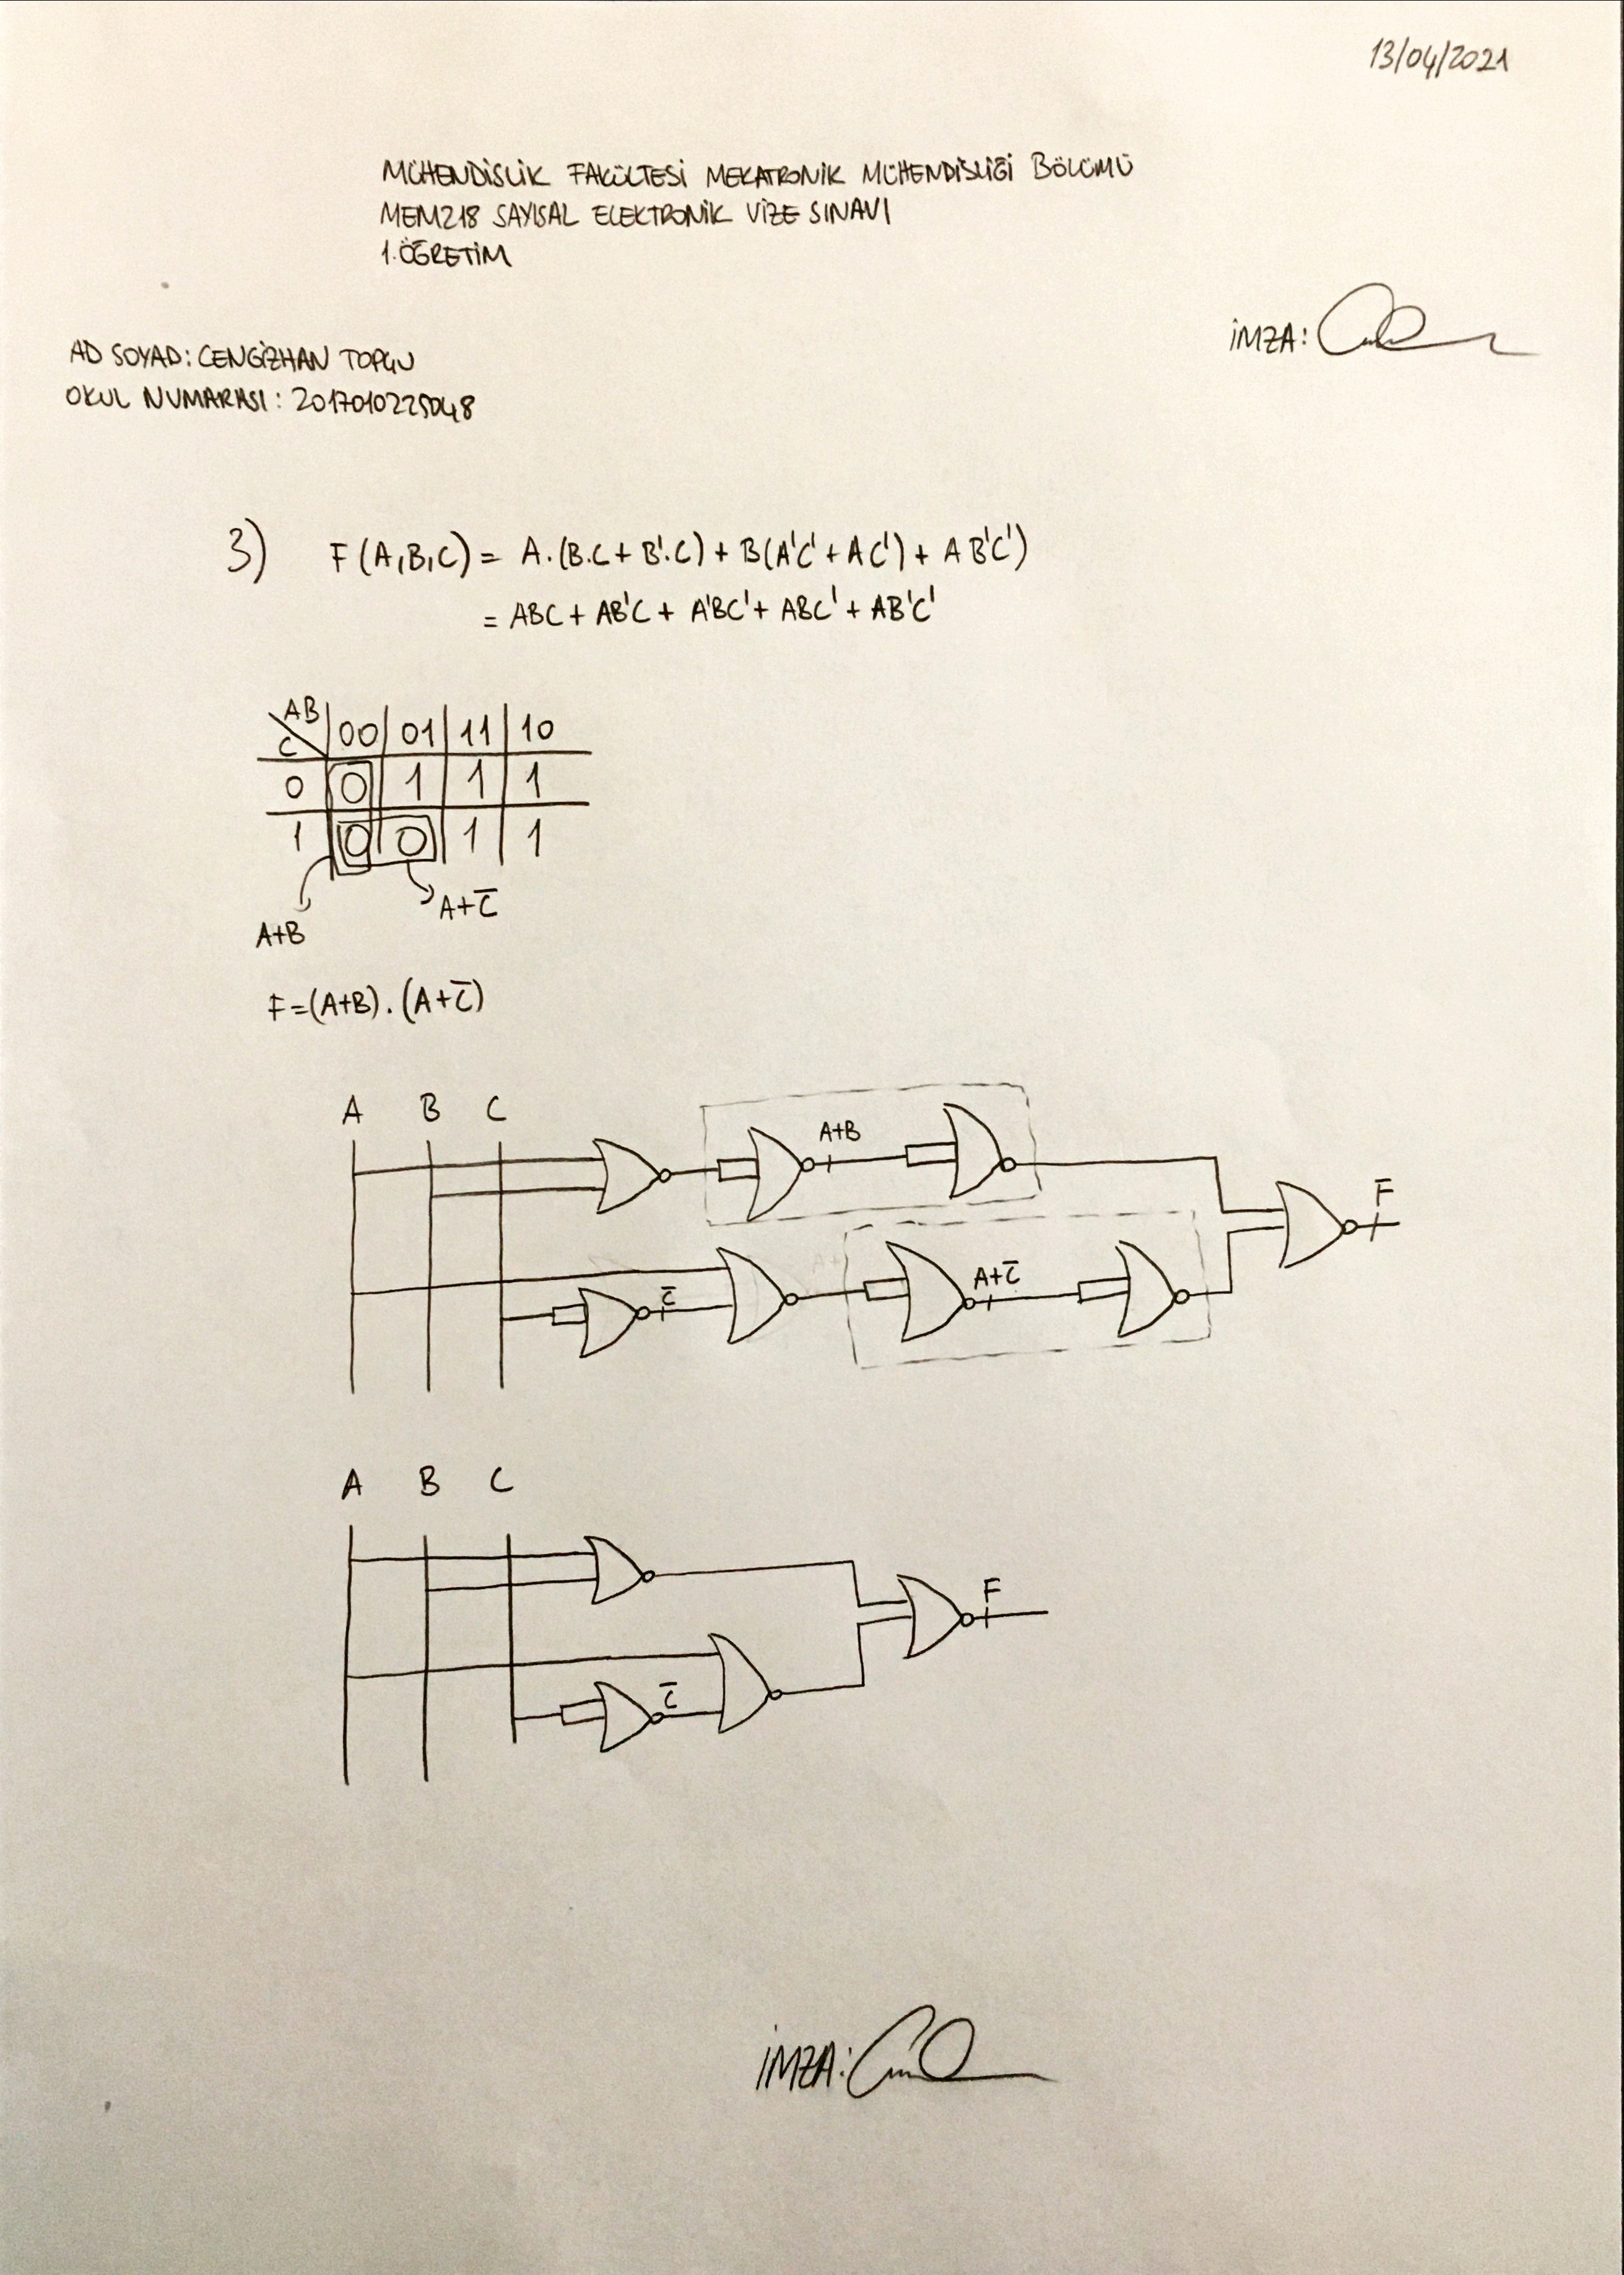 13/04/2021
MÜHENDİSLİK FAKÜLTESİ MEKATRONİK MÜHENDİSLİĞİ BÖLÜMÜ
MEM218 SAYISAL ELEKTRONİK VİZE SINAVI
1.ÖĞRETİM
İMZA:
AD SOYAD: CENGİZHAN TOPÇU
OKUL NUMARASI: 2017010225048
3) F(A,B,C) = A.(B.C + B'.C) + B(A'C' + AC') + AB'C')
= ABC + AB'C + A'BC' + ABC' + AB'C'
AB
C 00 01 11 10
0 0 1 1 1
1 0 0 1 1
A+C̅
A+B
F=(A+B).(A+C̅)
A B C
A+B
F
C̅ A+C̅
A B C
F
C̅
İMZA: